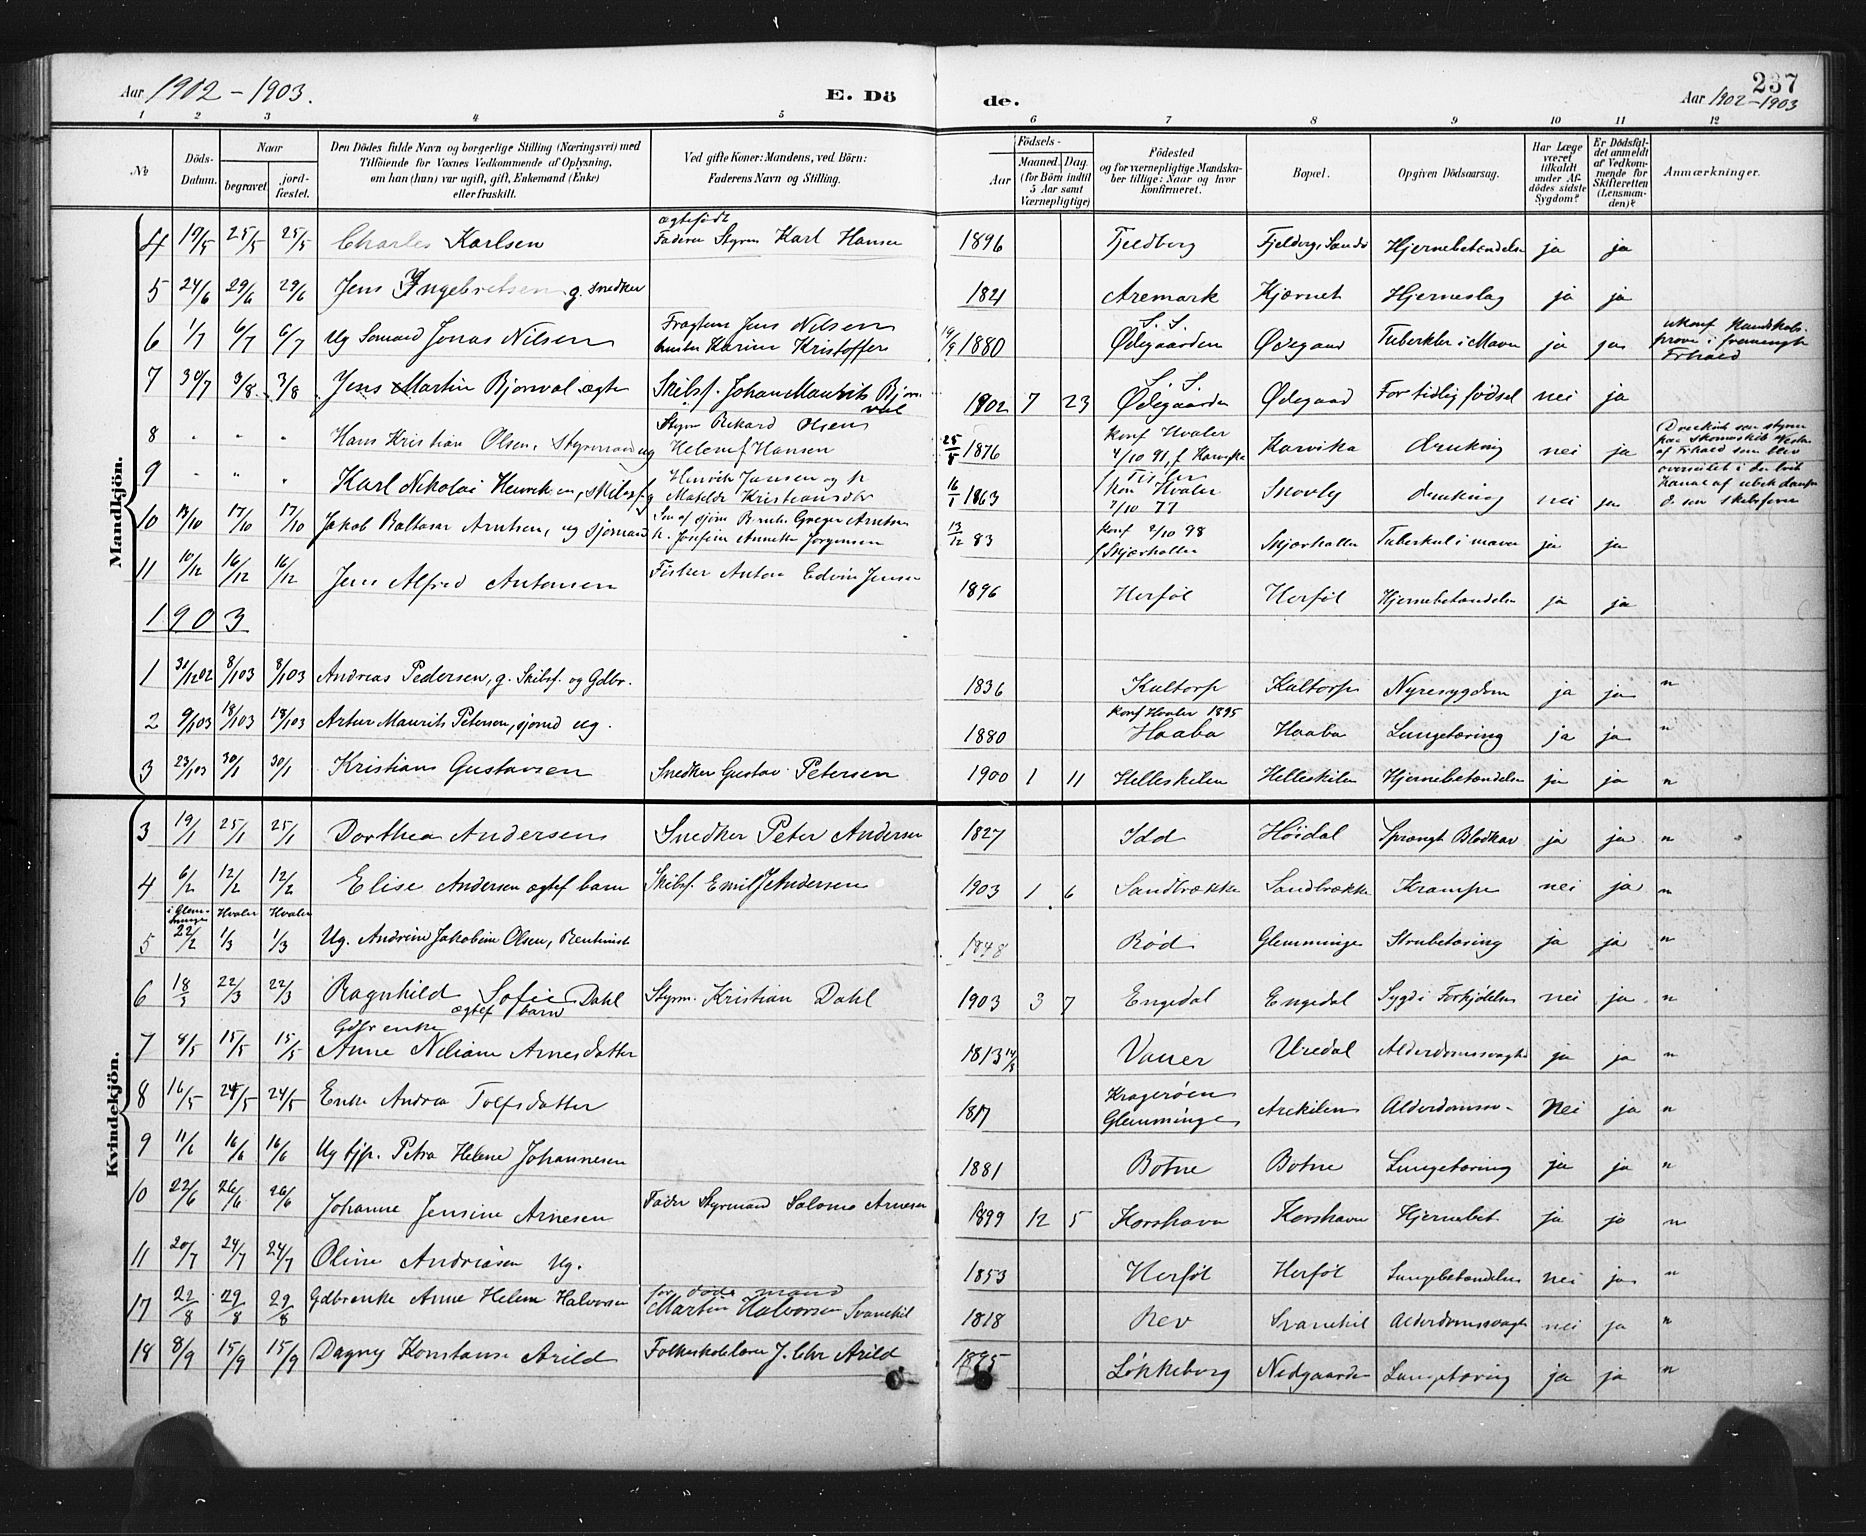 Aar 1902 - 1903.
E. Döde.
237
Aar 1902-1903
1 2 3 4 5 6 7 8 9 10 11 12
No
Döds-Datum.
Naar
begravet.
jord-fæstet.
Den Dödes fulde Navn og borgerlige Stilling (Næringsvei) med
Tilföiende for Voxnes Vedkommende af Oplysning,
om han (hun) var ugift, gift, Enkemand (Enke)
eller fraskilt.
Ved gifte Koner: Mandens, ved Börn:
Faderens Navn og Stilling.
Födsels-
Aar
Maaned. Dag.
(for Börn indtil
5 Aar samt
Værnepligtige)
Födested
og for værnepligtige Mandska-
ber tillige: Naar og hvor
konfirmeret.
Bopæl.
Opgiven Dödsaarsag.
Har Læge
været
tilkaldt
under Af-
dödes sidste
Sygdom?
Er Dödsfal-
det anmeldt
af Vedkom-
mende for
Skifteretten
(Lensman-
den)?
Anmærkninger.
Mandkjön.
4 19/5 25/5 25/5 Charles Karlsen ægtefødt Fader Styrm Karl Hansen 1896 Fjeldberg Hjernebetændelse ja ja
5 24/6 29/6 29/6 Jens Ingebretsen g. snedker 1821 Aremark Kjærnet Hjerneslag ja ja
6 1/7 6/7 6/7 Ug Sømand Jonas Nilsen Jens Nilsen Karine Kristoffer 19/9 1880 S. S. Ødegaarden Ødegaard Tuberkler i Maven ja ja
7 30/7 3/8 3/8 Jens Martin Bjørval ægte Skibsf. Johan Maurits Bjørval 1902 7 23 S. S. Ødegaarden Ødegaard For tidlig fødsel nei ja
8 " " " Hans Kristian Olsen, Styrmand ug Styrm Rikard Olsen Helene f Hansen 25/8 1876 Konf Hvaler 4/10 91, f Korvika drukning nei ja
9 " " " Karl Nikolai Henriksen, skibsf g Henrik Jansen og h Matilde Kristiansdtr 16/1 1863 Kon Hvaler 7/10 77 Skovby drukning nei ja
10 13/10 17/10 17/10 Jakob Baltasar Arntsen, ug sjømand Greger Arntsen h. Josefine Annette Jørgensen 13/12 83 Konf 2/10 98 f Skjærhallen Skjærhallen Tuberkul i maven ja ja
11 10/12 16/12 16/12 Jens Alfred Antonsen Fisker Anton Edvin Jensen 1896 Herføl Herføl Hjernebetændelse ja ja
1903
1 31/12 02 8/1 03 8/1 03 Andreas Pedersen, g. Skibsf. og Gdbr. 1836 Kultorp Kultorp Nyresygdom ja ja n
2 9/1 03 18/1 03 18/1 03 Artur Maurits Petersen, sjømd ug. 1880 Konf Hvaler 1895 Haaba Haaba Lungetæring ja ja n
3 23/1 03 30/1 30/1 Kristians Gustavsen Snedker Gustav Petersen 1900 1 11 Helleskilen Helleskilen Hjernebetændelse ja ja n
Kvindekjön.
3 19/1 25/1 25/1 Dorthea Andersens Snedker Peter Andersen 1827 Idd Høidal Sprængt Blodkar ja ja n
4 6/2 12/2 12/2 Elise Andersen ægtef barn Skibsf. Emil J Andersen 1903 1 6 Sandbrække Sandbrække Krampe nei ja n
5 i Glemminge 22/2 Hvaler 1/3 Hvaler 1/3 Ug. Andrine Jakobine Olsen, Rentenist 1848 Rød Glemminge Strubetæring ja ja n
6 18/3 22/3 22/3 Ragnhild Sofie Dahl ægtef barn Styrm. Kristian Dahl 1903 3 7 Engedal Engedal Sygd i Forkjølelse nei ja n
7 8/5 15/5 15/5 Gdbr enke Anne Neliane Arnesdatter 1813 Vauer Uredal Alderdomssvaghed ja ja n
8 16/5 24/5 24/5 Enke Andrea Tolfsdatter 1817 Kragerøen Glemminge Arekilens Alderdomssv. nei ja n
9 11/6 16/6 16/6 Ug tjp. Petra Helene Johannesen 1881 Botne Botne Lungetæring ja ja n
10 22/6 26/6 26/6 Johanne Jensine Arnesen Fader Styrmand Salomo Arnesen 1899 12 5 Korshavn Korshavn Hjernebet ja ja n
11 20/7 24/7 24/7 Oline Andreasen Ug. 1853 Herføl Herføl Lungebetændelse nei ja n
17 22/8 29/8 29/8 Gdbrenke Anne Helene Halvorsen for døde mand Martin Halvorsen Svanekil 1818 Rev Svanekil Alderdomssvaghed nei ja n
18 8/9 15/9 15/9 Dagny Konstanse Arild Folkeskolelærer J. Chr Arild 1895 Løkkeborg Nedgaarden Lungetæring ja ja n